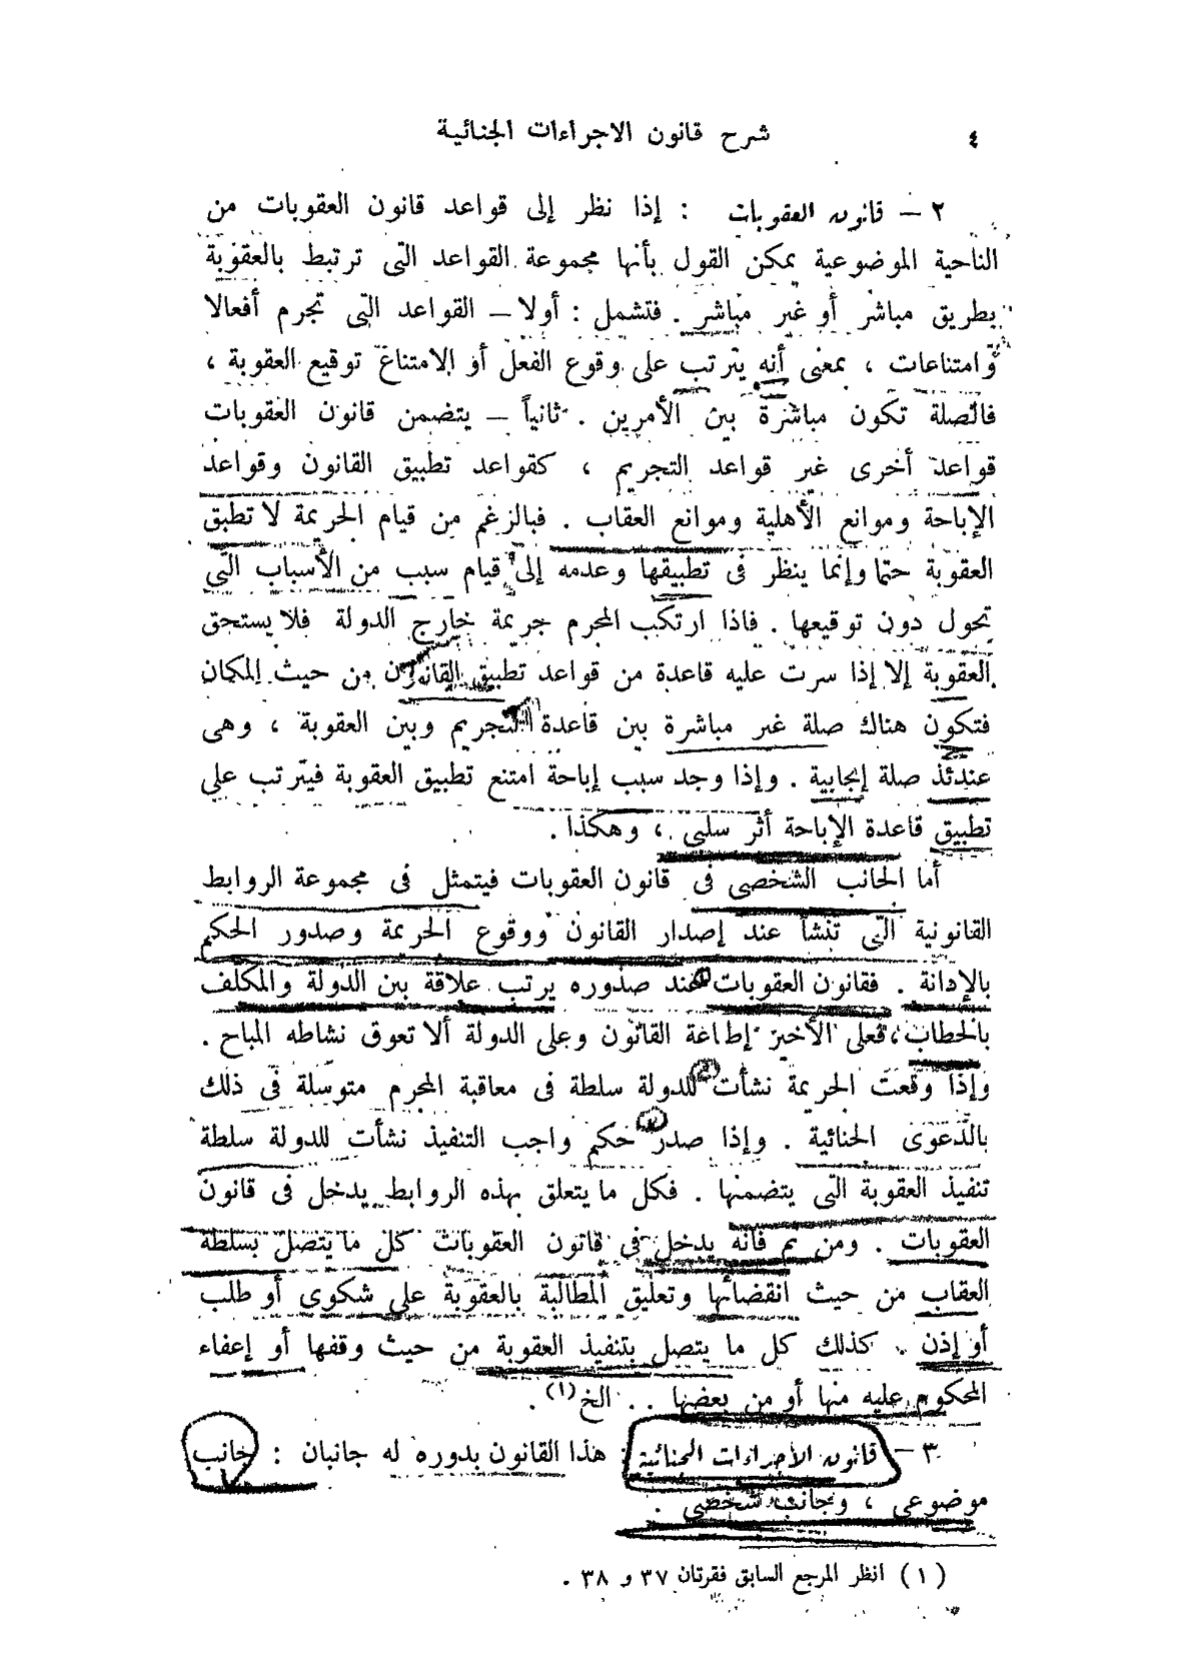 ٤
شرح قانون الاجراءات الجنائية
٢ – قانون العقوبات : إذا نظر إلى قواعد قانون العقوبات من
الناحية الموضوعية يمكن القول بأنها مجموعة القواعد التى ترتبط بالعقوبة
بطريق مباشر أو غير مباشر . فتشمل : أولا – القواعد التى تجرم أفعالا
وامتناعات ، بمعنى أنه يترتب على وقوع الفعل أو الامتناع توقيع العقوبة ،
فالصلة تكون مباشرة بين الأمرين . ثانياً – يتضمن قانون العقوبات
قواعد أخرى غير قواعد التجريم ، كقواعد تطبيق القانون وقواعد
الإباحة وموانع الأهلية وموانع العقاب . فبالرغم من قيام الجريمة لا تطبق
العقوبة حتما وإنما ينظر فى تطبيقها وعدمه إلى قيام سبب من الأسباب التى
تحول دون توقيعها . فاذا ارتكب المجرم جريمة خارج الدولة فلا يستحق
العقوبة إلا إذا سرت عليه قاعدة من قواعد تطبيق القانون من حيث المكان
فتكون هناك صلة غير مباشرة بين قاعدة التجريم وبين العقوبة ، وهى
عندئذ صلة إيجابية . وإذا وجد سبب إباحة امتنع تطبيق العقوبة فيترتب على
تطبيق قاعدة الإباحة أثر سلبى ، وهكذا .
أما الجانب الشخصى فى قانون العقوبات فيتمثل فى مجموعة الروابط
القانونية التى تنشأ عند إصدار القانون ووقوع الجريمة وصدور الحكم
بالإدانة . فقانون العقوبات عند صدوره يرتب علاقة بين الدولة والمكلف
بالخطاب ، فعلى الأخير إطاعة القانون وعلى الدولة ألا تعوق نشاطه المباح .
وإذا وقعت الجريمة نشأت للدولة سلطة فى معاقبة المجرم متوسلة فى ذلك
بالدعوى الجنائية . وإذا صدر حكم واجب التنفيذ نشأت للدولة سلطة
تنفيذ العقوبة التى يتضمنها . فكل ما يتعلق بهذه الروابط يدخل فى قانون
العقوبات . ومن ثم فانه يدخل فى قانون العقوبات كل ما يتصل بسلطة
العقاب من حيث انقضائها وتعليق المطالبة بالعقوبة على شكوى أو طلب
أو إذن . كذلك كل ما يتصل بتنفيذ العقوبة من حيث وقفها أو إعفاء
المحكوم عليه منها أو من بعضها . . الخ (١) .
٣ – قانون الأجراءات الجنائية : هذا القانون بدوره له جانبان : جانب
موضوعى ، وجانب شخصى .
(١) انظر المرجع السابق فقرتان ٣٧ و ٣٨ .